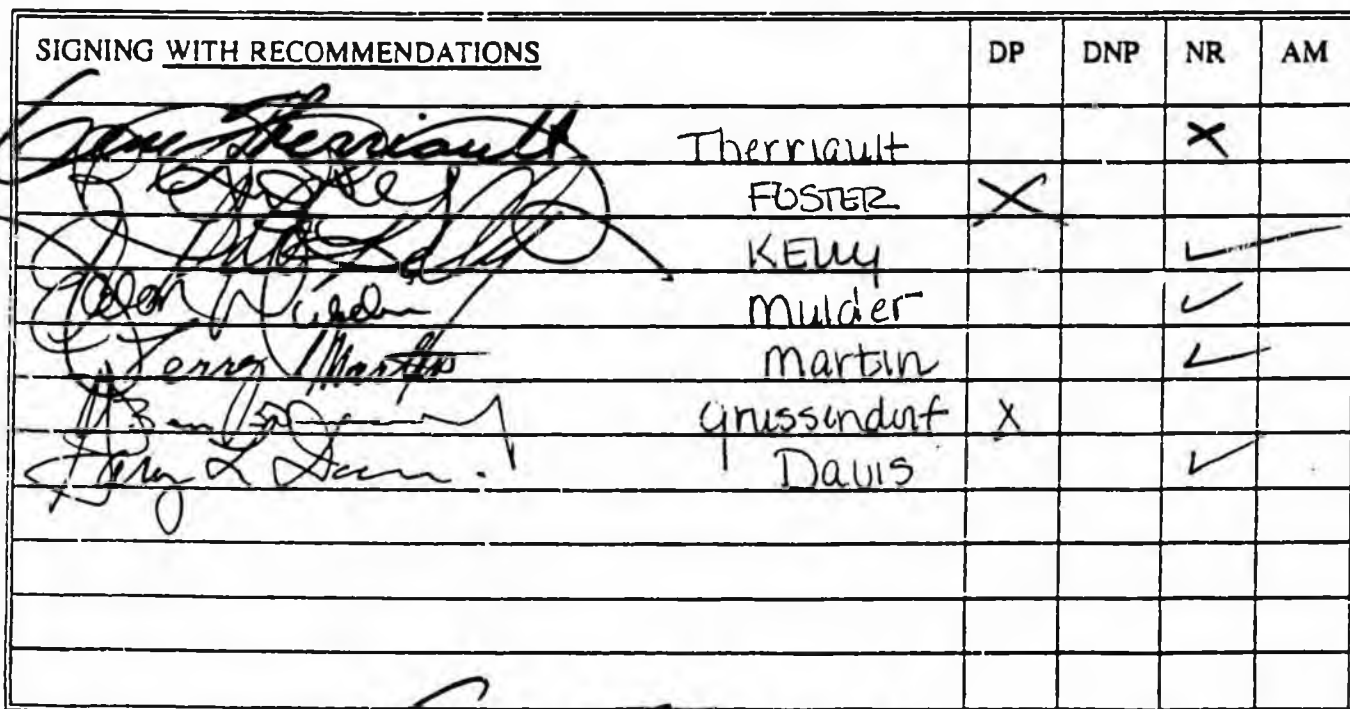 SIGNING WITH RECOMMENDATIONS DP DNP NR AM
Gene Therriault Therriault X
FOSTER X
Kelly KELLY ✓
Mulder ✓
Terry Martin Martin ✓
Grussendorf X
Davis ✓